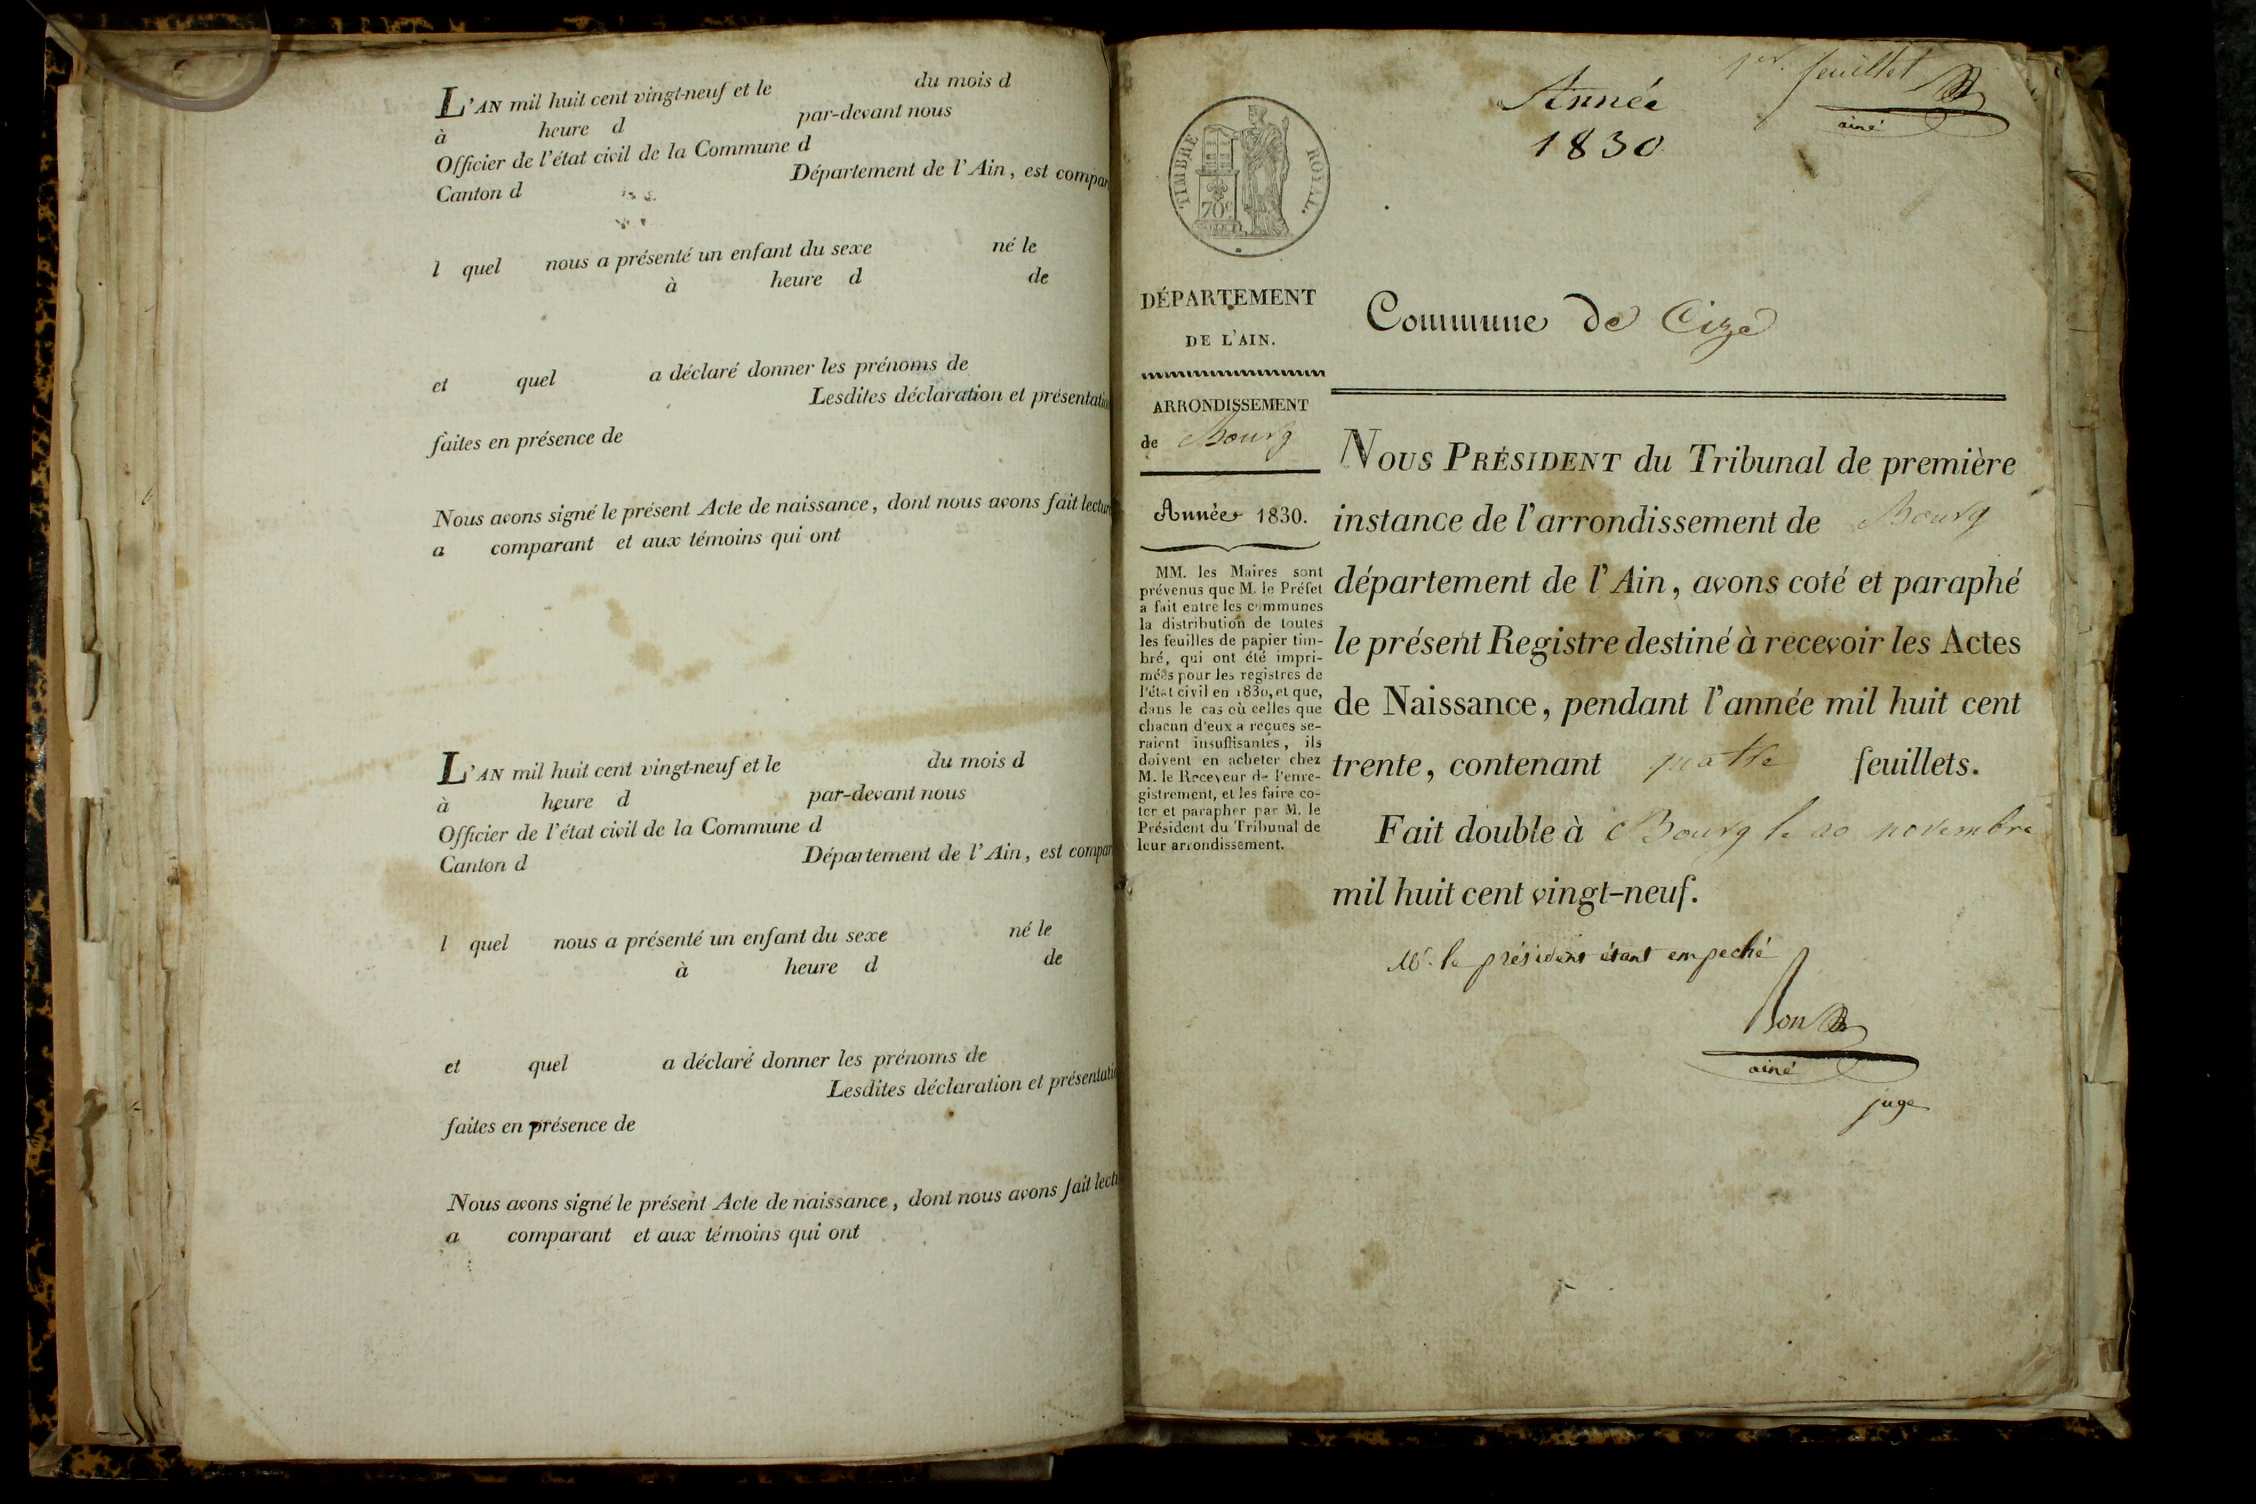 L'AN mil huit cent vingt-neuf et le du mois d
à heure d par-devant nous
Officier de l'état civil de la Commune d
Canton d Département de l'Ain, est compar
l quel nous a présenté un enfant du sexe né le
à heure d de
et quel a déclaré donner les prénoms de
Lesdites déclaration et présentatio
faites en présence de
Nous avons signé le présent Acte de naissance, dont nous avons fait lectur
a comparant et aux témoins qui ont
L'AN mil huit cent vingt-neuf et le du mois d
à heure d par-devant nous
Officier de l'état civil de la Commune d
Canton d Département de l'Ain, est compar
l quel nous a présenté un enfant du sexe né le
à heure d de
et quel a déclaré donner les prénoms de
Lesdites déclaration et présentatio
faites en présence de
Nous avons signé le présent Acte de naissance, dont nous avons fait lectu
a comparant et aux témoins qui ont
1er. feuillet
ainé
Année
1830
TIMBRE ROYAL.
70c
DÉPARTEMENT
DE L'AIN.
ARRONDISSEMENT
de Bourg
Année 1830.
MM. les Maires sont
prévenus que M. le Préfet
a fait entre les communes
la distribution de toutes
les feuilles de papier tim-
bré, qui ont été impri-
mées pour les registres de
l'état civil en 1830, et que,
dans le cas où celles que
chacun d'eux a reçues se-
raient insuffisantes, ils
doivent en acheter chez
M. le Receveur de l'enre-
gistrement, et les faire co-
ter et parapher par M. le
Président du Tribunal de
leur arrondissement.
Commune de Cize
NOUS PRÉSIDENT du Tribunal de première
instance de l'arrondissement de Bourg
département de l'Ain, avons coté et paraphé
le présent Registre destiné à recevoir les Actes
de Naissance, pendant l'année mil huit cent
trente, contenant quatre feuillets.
Fait double à Bourg le 20 novembre
mil huit cent vingt-neuf.
Mr. le président étant empeché
ainé
juge